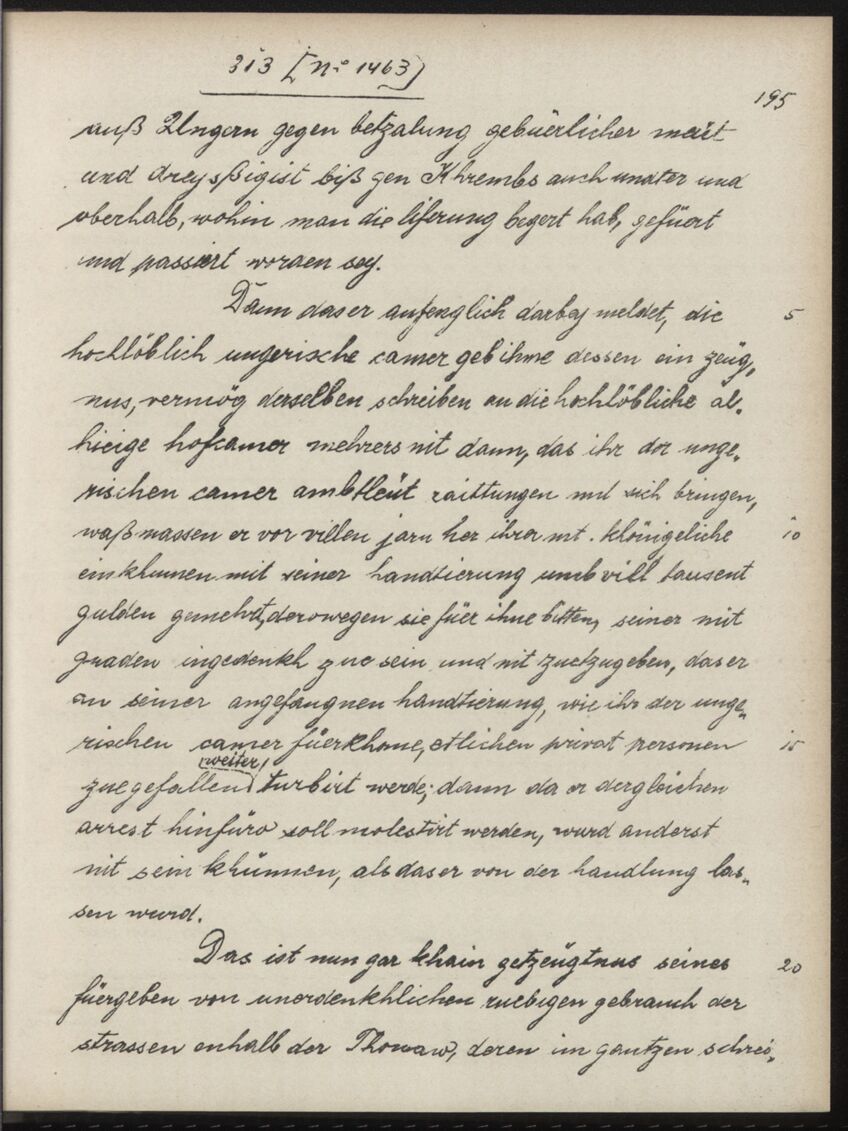 313 [Nº 1463]
195
auß Ungern gegen betzalung gebüerlicher meüt
und dreyssßigist biß gen Khrembs auch undter und
oberhalb, wohin man die liferung begert hab, gefüert
und passiert worden sey.
Dann das er anfenglich darbey meldet, die 5
hochlöblich ungerische camer geb ihme dessen ein zeüg„
nus, vermög derselben schreiben an die hochlöbliche al„
hieige hofcamer mehrers nit dann, das ihr der unge„
rischen camer ambtleüt raittungen mit sich bringen,
waßmassen er vor villen jarn her ihrer mt. khönigeliche 10
einkhumen mit seiner handtierung umb vill tausent
gulden gemehrt, derowegen sie für ihne bitten, seiner mit
gnaden ingedenkh zue sein und nit zuetzugeben, das er
an seiner angefangnen handtierung, wie ihr der unge„
rischen camer füerkhome, etlichen privat personen 15
weiter
zue gefallen turbirt werde; dann da er dergleichen
arrest hinfüro soll molestirt werden, wurd anderst
nit sein khünnen, als das er von der handlung las„
sen wurd.
Das ist nun gar khain getzeügtnus seines 20
fürgeben von unerdenkhlichen ruebigen gebrauch der
strassen enhalb der Thonaw, deren im gantzen schrei„